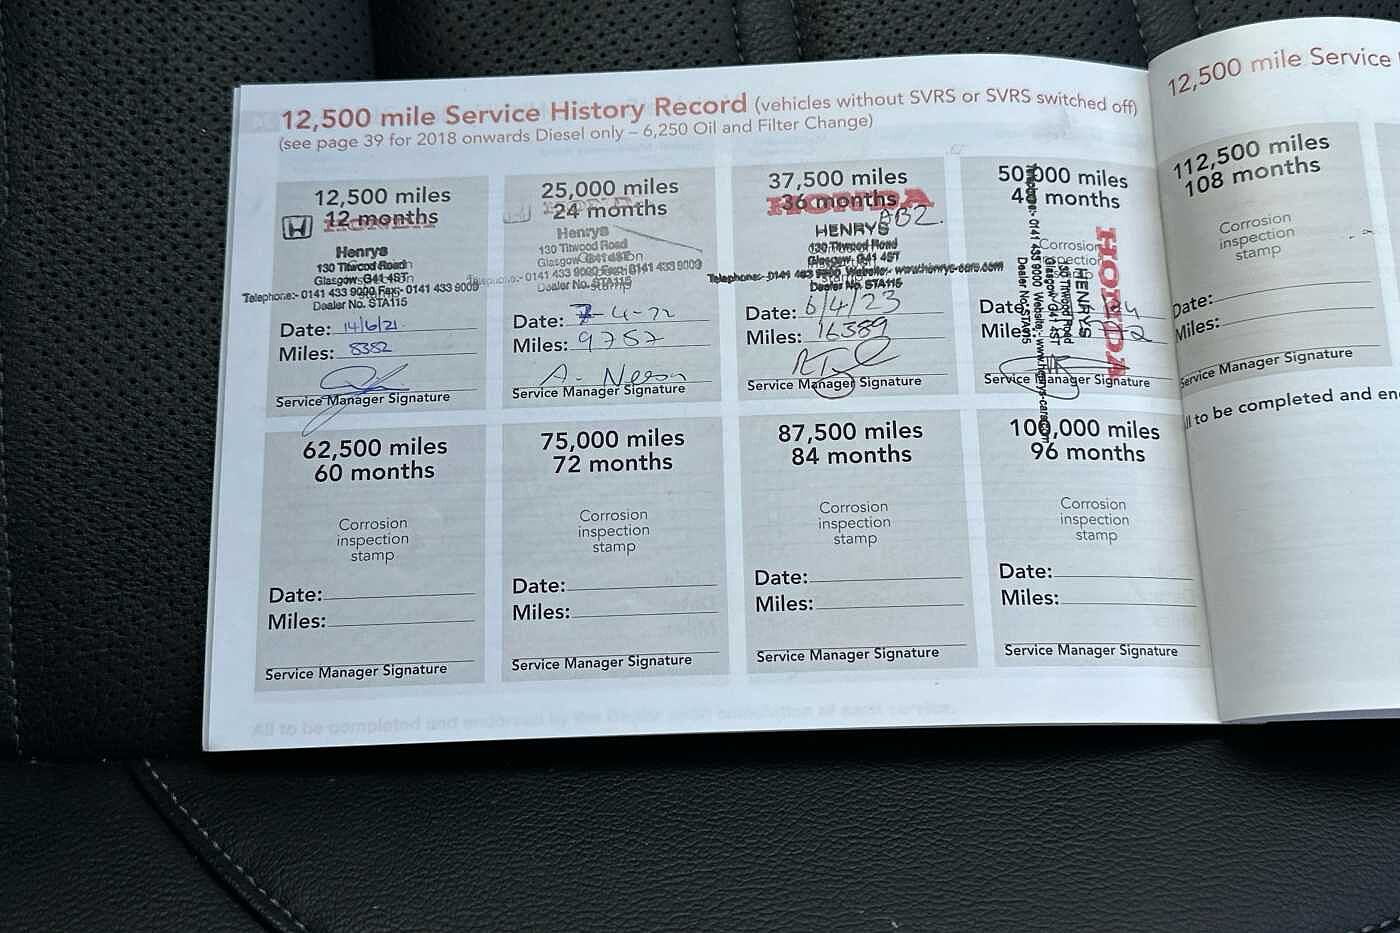 12,500 mile Service History Record (vehicles without SVRS or SVRS switched off)
(see page 39 for 2018 onwards Diesel only – 6,250 Oil and Filter Change)
12,500 miles
12 months
HONDA
Henrys
130 Titwood Road
Glasgow G41 4ST
Telephone:- 0141 433 9000 Fax:- 0141 433 9009
Dealer No. STA115
Date: 14/6/21
Miles: 8382
Service Manager Signature
25,000 miles
24 months
HONDA
Henrys
130 Titwood Road
Glasgow G41 4ST
Telephone:- 0141 433 9000 Fax:- 0141 433 9009
Dealer No. STA115
Date: 7-4-22
Miles: 9757
A. Nelson
Service Manager Signature
37,500 miles
36 months
HONDA
AB2.
HENRYS
130 Titwood Road
Glasgow G41 4ST
Telephone:- 0141 433 9000 Website:- www.henrys-cars.com
Dealer No. STA115
Date: 6/4/23
Miles: 16389
Service Manager Signature
50,000 miles
months
Corrosion
HONDA
HENRYS
130 Titwood Road
Glasgow G41 4ST
Telephone:- 0141 433 9000 Website:- www.henrys-cars.com
Dealer No. STA115
Date:
Miles:
Service Manager Signature
62,500 miles
60 months
Corrosion
inspection
stamp
Date:
Miles:
Service Manager Signature
75,000 miles
72 months
Corrosion
inspection
stamp
Date:
Miles:
Service Manager Signature
87,500 miles
84 months
Corrosion
inspection
stamp
Date:
Miles:
Service Manager Signature
100,000 miles
96 months
Corrosion
inspection
stamp
Date:
Miles:
Service Manager Signature
All to be completed and endorsed by the Dealer upon completion of each service.
12,500 mile Service
112,500 miles
108 months
Corrosion
inspection
stamp
Date:
Miles:
Service Manager Signature
to be completed and